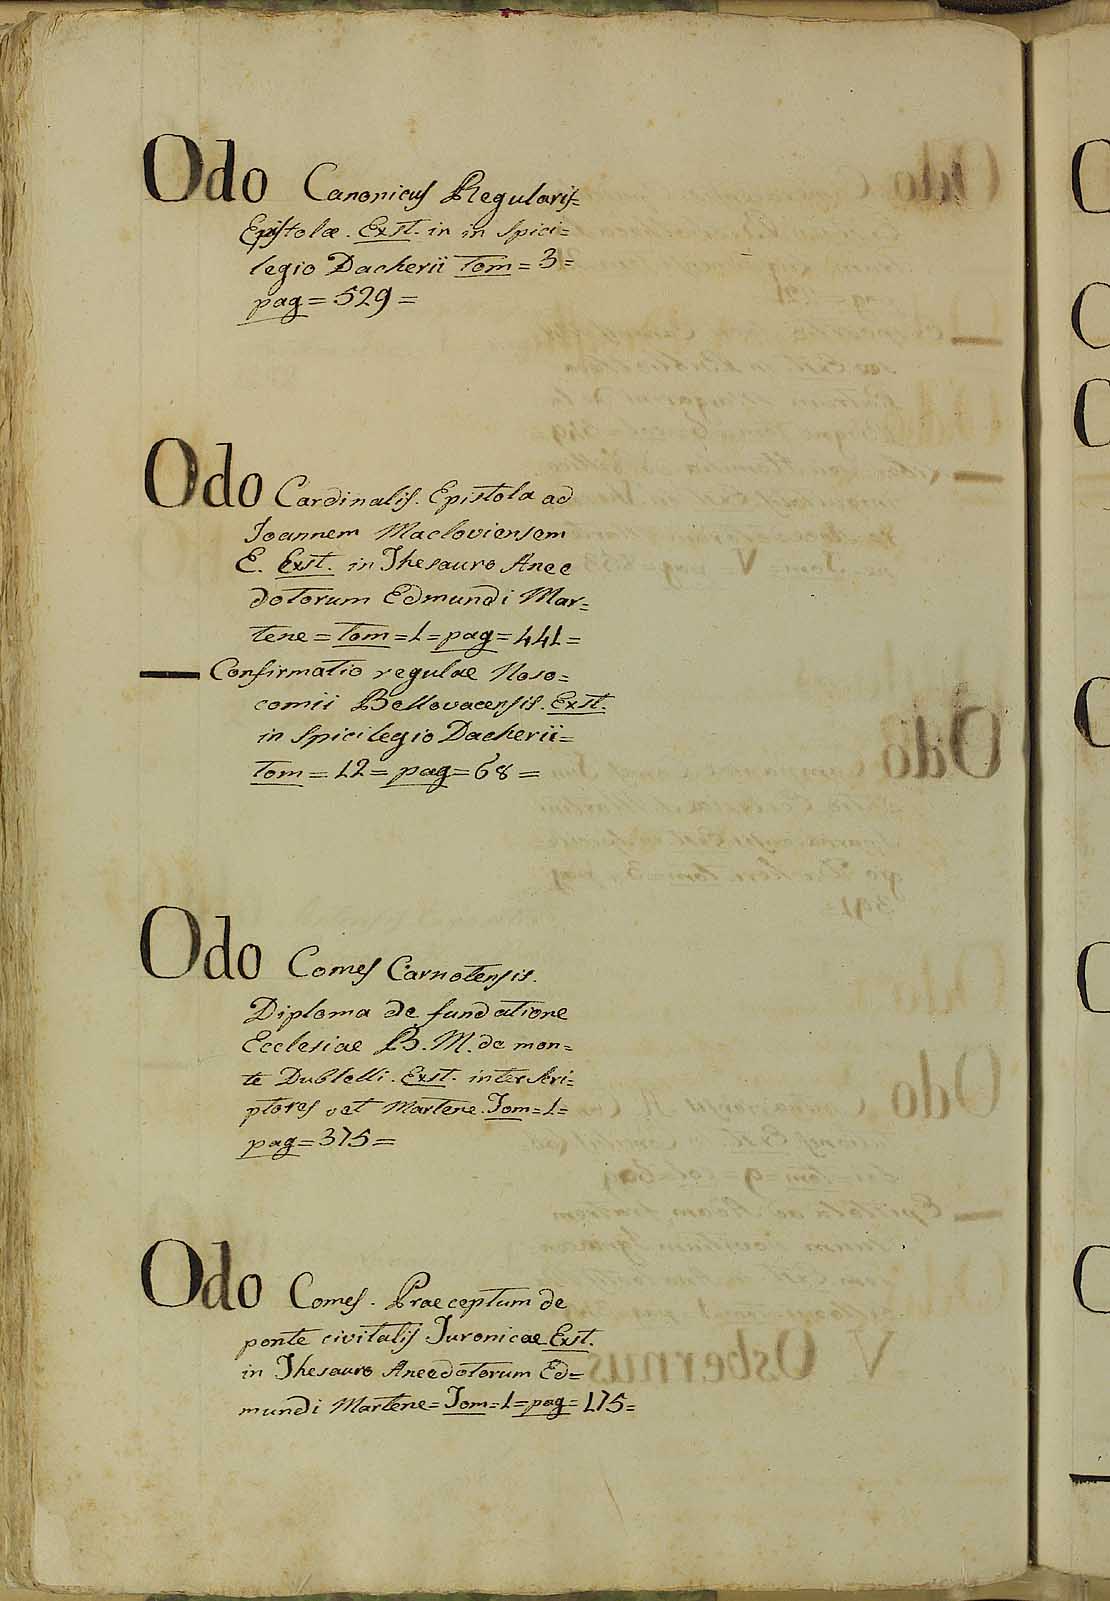 Odo Canonicus Regularis=
Epistolæ. Exst. in in Spici=
legio Dacherii Tom=3=
pag=529=
Odo Cardinalis. Epistola ad
Joannem Macloviensem
E. Exst. in Thesauro Anec
dotorum Edmundi Mar=
tene=Tom=1=pag=441=
— Confirmatio regulae Noso=
comii Bellovacensis. Exst.
in Spicilegio Dacherii=
Tom=12=pag=68=
Odo Comes Carnotensis.
Diploma de fundatione
Ecclesiae B.M. de mon=
te Dublelli. Exst. inter Scri=
ptores vet Martene. Tom=1=
pag=375=
Odo Comes. Praeceptum de
ponte civitatis Turonicae Exst.
in Thesauro Anecdotorum Ed=
mundi Martene=Tom=1=pag=175=